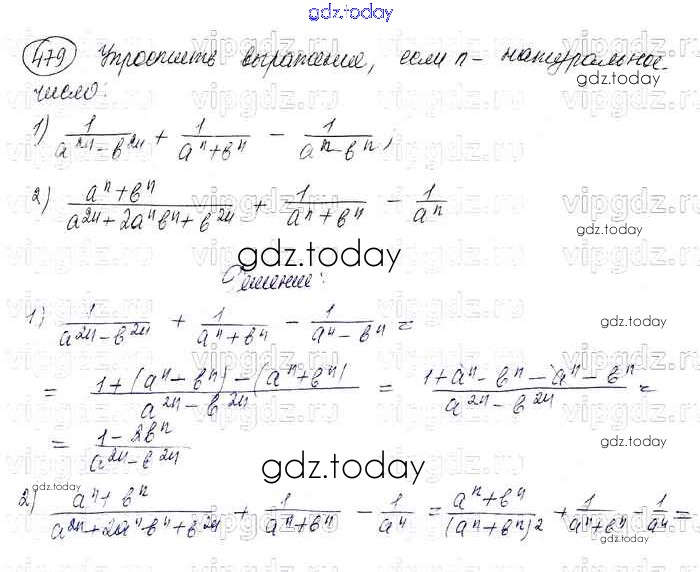 gdz.today
479 Упростить выражение, если n - натуральное
gdz.today
число:
1) 1/(a^2n - b^2n) + 1/(a^n + b^n) - 1/(a^n - b^n);
gdz.today
2) (a^n + b^n)/(a^2n + 2a^n b^n + b^2n) + 1/(a^n + b^n) - 1/a^n
gdz.today
gdz.today
Решение:
1) 1/(a^2n - b^2n) + 1/(a^n + b^n) - 1/(a^n - b^n) =
gdz.today
= (1 + (a^n - b^n) - (a^n + b^n))/(a^2n - b^2n) = (1 + a^n - b^n - a^n - b^n)/(a^2n - b^2n) =
= (1 - 2b^n)/(a^2n - b^2n)
gdz.today
gdz.today
gdz.today
2) (a^n + b^n)/(a^2n + 2a^n b^n + b^2n) + 1/(a^n + b^n) - 1/a^n = (a^n + b^n)/(a^n + b^n)^2 + 1/(a^n + b^n) - 1/a^n =
gdz.today